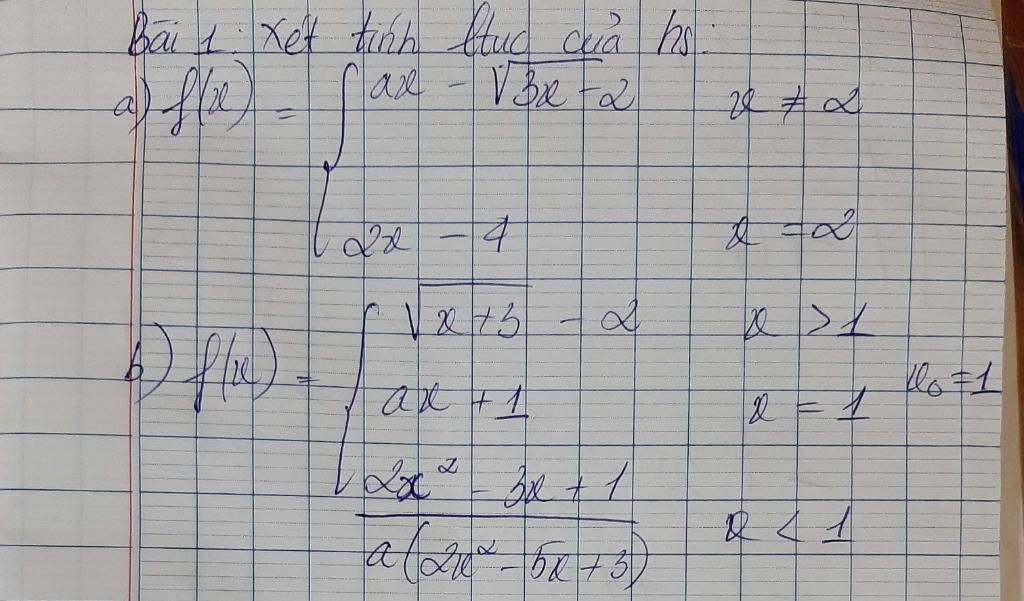 Bài 1: Xét tính ltục của hs:
a) f(x) = { ax - √(3x - 2) x ≠ 2
2x - 4 x = 2
b) f(x) = { √(x+3) - 2 x > 1
ax + 1 x = 1 x₀ = 1
2x² - 3x + 1 / a(2x² - 5x + 3) x < 1